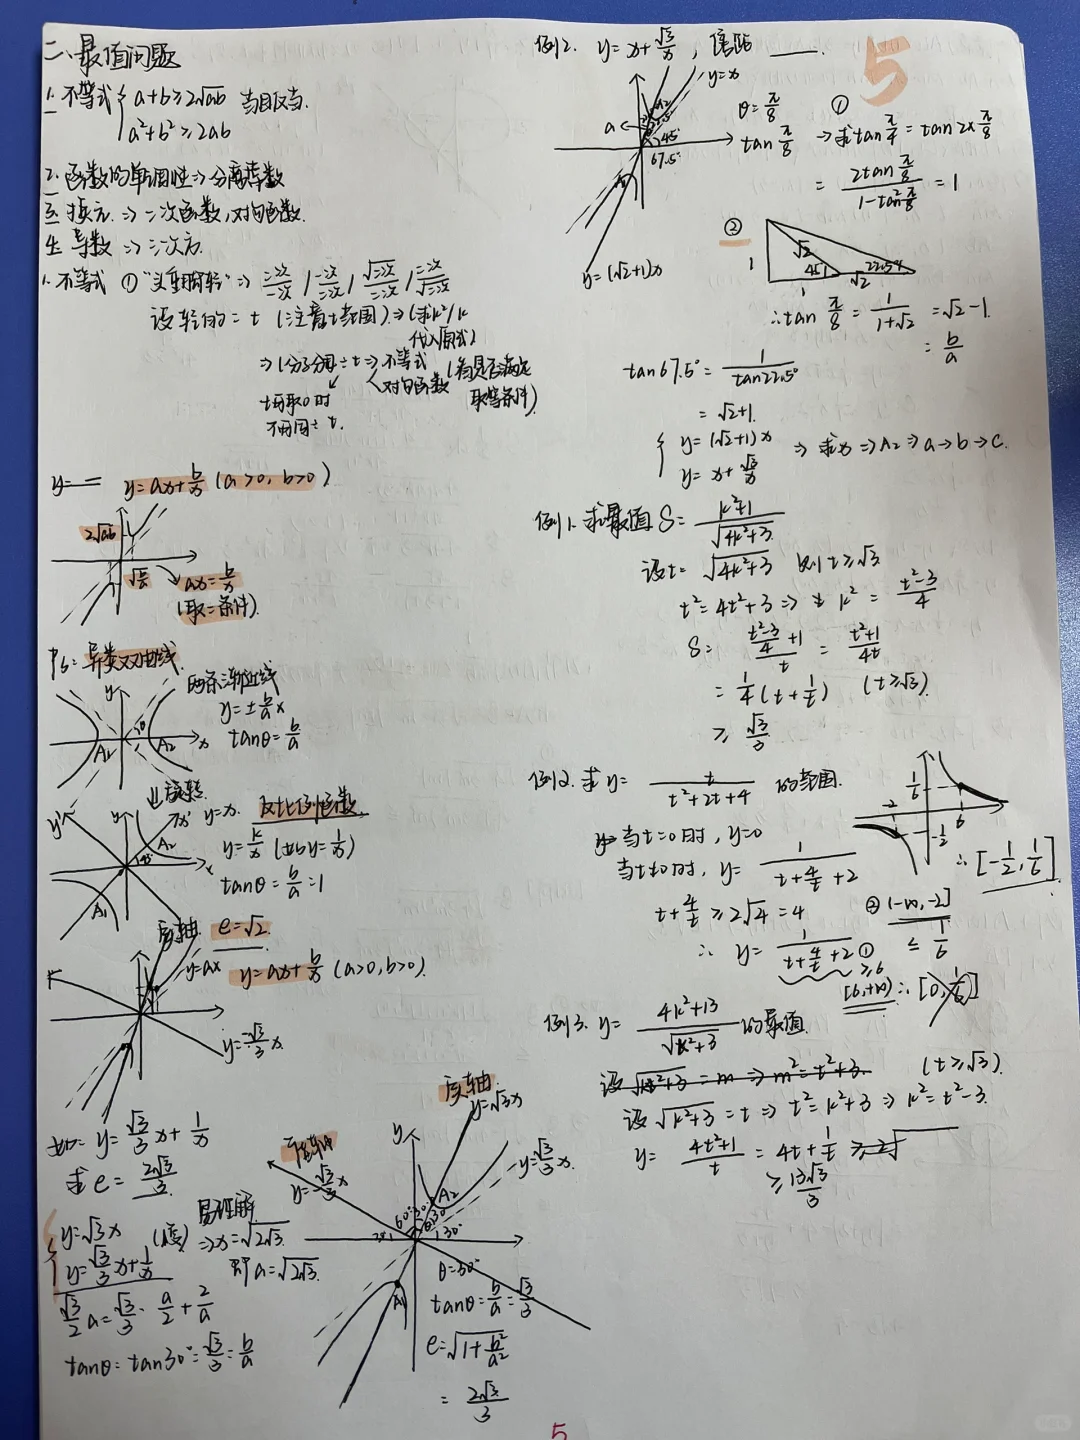 二、最值问题
1. 不等式 { a+b≥2√ab 当且仅当.
a²+b²≥2ab
2. 函数的单调性⇒分离常数
3. 换元⇒二次函数,对勾函数.
4. 导数⇒三次方.
1. 不等式 ①
设 = t (注意t范围)⇒(求k²/k
代入原式)
⇒(分子分母÷t⇒不等式
对勾函数 (看是否满足
取等条件)
t可取0时
不可同÷t.
y= y=ax+b/x (a>0, b>0)
2√ab
ax=b/x
(取=条件).
异类双曲线.
y
A₁ A₂ x
两条渐近线
y=±b/a x
tanθ=b/a
旋转.
y' y x' y=x. 反比例函数.
A₂ A₁ x
y=k/x (如y=1/x)
tanθ=b/a=1
e=√2.
y=ax y=ax+b/x (a>0,b>0).
如: y=√3/3 x+1/x
求e=2√3/3.
{ y=√3x
y=√3/3 x+1/x
易理解
⇒x=√2√3.
即a=√2√3.
√3/2 a=√3/3·a/2+2/a
tanθ=tan30°=√3/3=b/a
y=√3x
y
y=√3/3 x.
A₂
60° 30° 30°
A₁
θ=30°
tanθ=b/a=√3/3
e=√1+b²/a²
=2√3/3
5
例2. y=x+√3/x,
5
y=x
a A₂
45°
67.5°
A₁
y=(√2+1)x
θ=π/8
tan π/8
①
⇒求tan π/4=tan2×π/8
=2tan π/8/1-tan² π/8=1
②
1 √2 45° 22.5°
1 √2
∴tan π/8=1/1+√2=√2-1.
=b/a
tan67.5°=1/tan22.5°
=√2+1.
{ y=(√2+1)x
y=x+√3/x
⇒求x⇒A₂⇒a→b→c.
例1. 求最值 S=k²+1/√4k²+3.
设t=√4k²+3 则t≥√3
t²=4t²+3⇒ k²=t²-3/4
S=t²-3/4+1/t=t²+1/4t
=1/4(t+1/t) (t≥√3).
≥√3/3
例2. 求y=t/t²+2t+4的范围.
当t=0时, y=0
当t≠0时, y=1/t+4/t+2
t+4/t≥2√4=4 ②(-∞,-2]
∴ y=1/t+4/t+2 ① ≤1/6
≥6
[6,+∞) ∴[0,1/6]
1/6
-2
6
-1/2
∴[-1/2,1/6]
例3. y=4k²+13/√k²+3的最值.
设√k²+3=m⇒m²=t²+3. (t≥√3).
设√k²+3=t⇒t²=k²+3⇒k²=t²-3.
y=4t²+1/t=4t+1/t≥2√
≥13√3/3
5